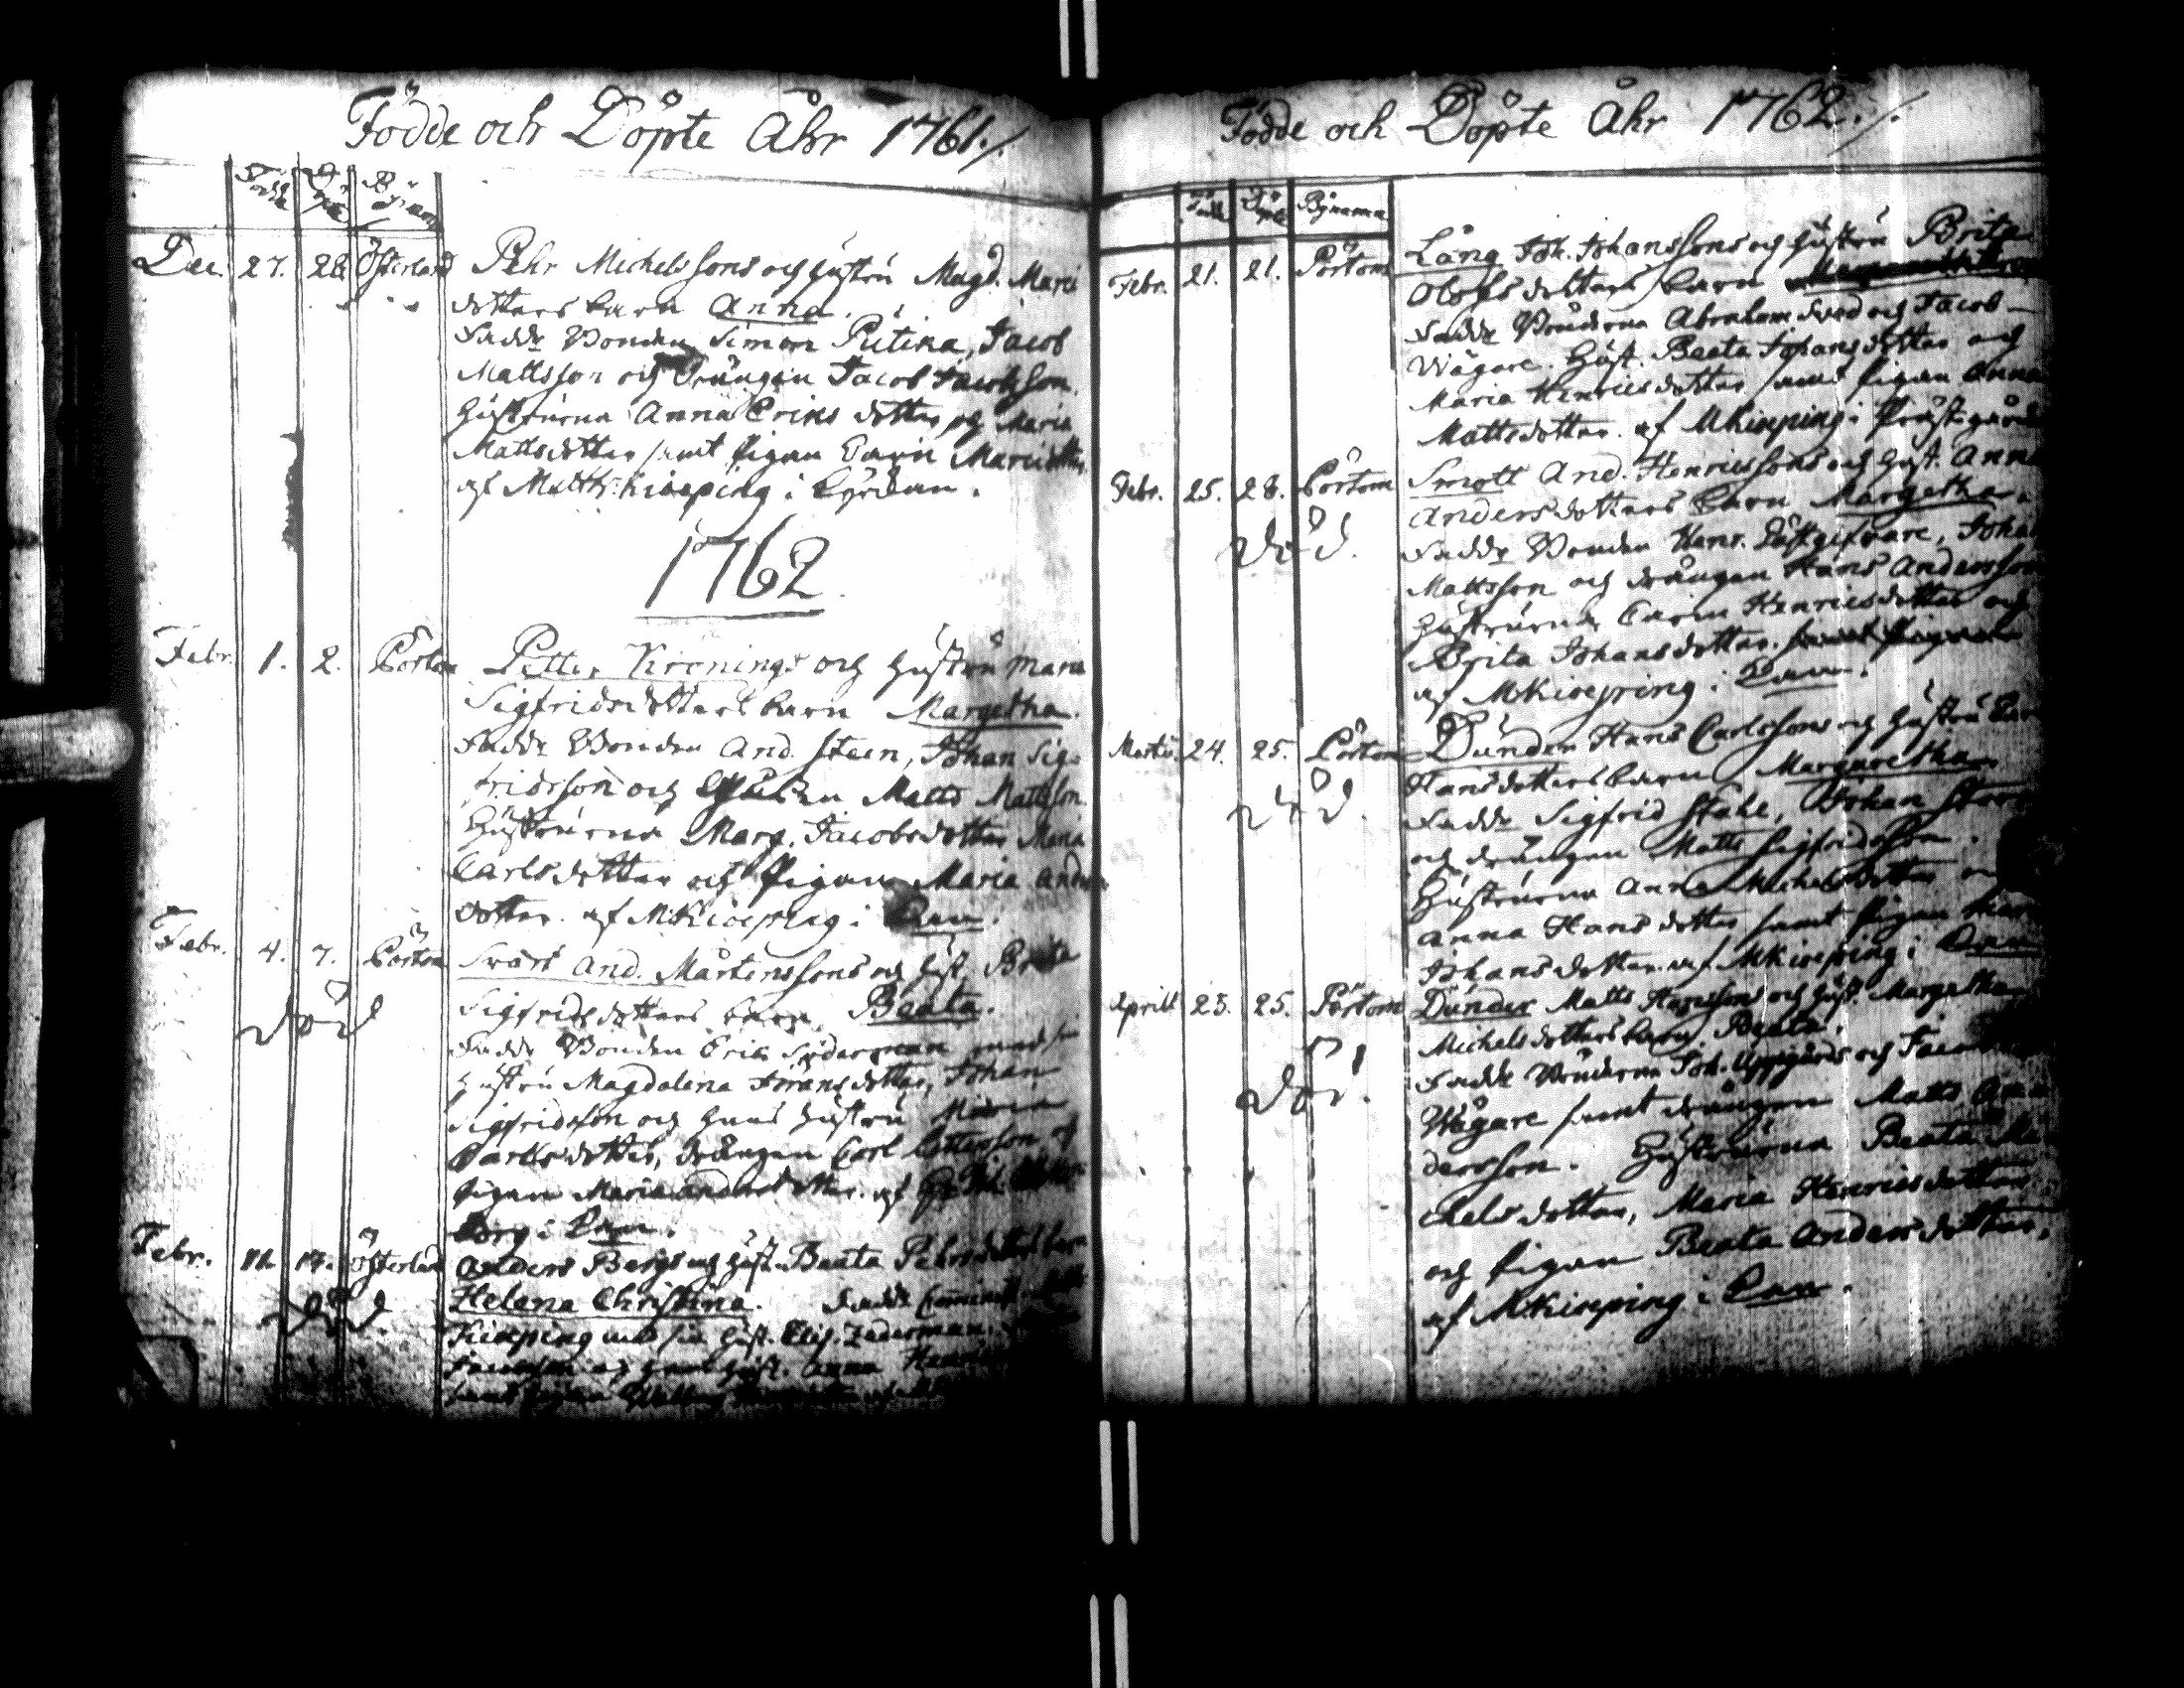 Födde och Döpte Åhr 1761./.
Födde Döpte Bynamn
Dec. 27. 28. Österland Pehr Michelssons och hustru Magd. Marci
dotters barn Anna.
Fadd. Bonden Simon Putina, Jacob
Mattsson och Drängen Jacob Jacobsson.
Hustrurna Anna Eriks dotter och Maria
Mattsdotter samt pigan Carin
af Matth. Kioeping i Kyrckan.
1762
Febr. 1. 2. Pörtom Petter Kronings och hustru Maria
Sigfridsdotters barn Margetha.
Fadd. Bonden And. Steen, Johan Sig-
fridsson och Matts Mattsson.
Hustrurna Marg. Jacobsdotter Maria
Carlsdotter och Pigan Maria Anders
dotter. af MKioeping i
Febr. 4. 7. Pörtom Svart And. Mårtenssons och hust. Brita
Sigfridsdotters barn Beata.
död
Fadd. Bonden Erik Söderman med sin
hustru Magdalena Jöransdotter, Johan
Sigfridsson och hans hustru Maria
Carlsdotter, drängen Carl Pettersson och
pigan Maria Andersdotter. af
borg i
Febr. 11. 14. Österland Anders Bergs och hust. Beata Pehrsdotters barn
Helena Christina. Fadd.
död
Kioeping med sin hust. Elis.
och hans hust. Anna
Födde och Döpte Åhr 1762./.
Född Döpt Bynamn
Febr. 21. 21. Pörtom Lång Joh. Johanssons och hustru Brita
Olofsdotters barn
Fadd. Bönderna Abraham och Jacob
Wägare. Hust. Beata Johansdotter och
Maria Henricsdotter samt pigan Anna
Mattsdotter. af MKioeping i Prästgården
Febr. 25. 28. Pörtom Smått And. Henricssons och hust. Anna
Andersdotters barn Margetha.
död.
Fadd. Bonden Henr. Gästgifware, Johan
Mattsson och drängen Hans Andersson
Hustrurna Carin Henricsdotter och
Brita Johansdotter.
af MKioeping i
Martii 24. 25. Pörtom Dunder Hans Carlssons och hustru
Hansdotters barn Margaretha
död.
Fadd. Sigfrid Ståhl, Johan
och drängen Matts Sigfridsson.
Hustrurna Anna Michelsdotter
Anna Hansdotter samt pigan
Johansdotter. af MKioeping i
Aprill 23. 25. Pörtom Dunder Matts Hanssons och hust. Margetha
Michelsdotters barn Beata.
död.
Fadd. Bönderna Joh. Uppgårds och Jacob
Wägare samt drängen Matts An-
dersson. Hustrurna Beata Mi-
chelsdotter, Maria Henricsdotter
och pigan Beata Andersdotter,
af MKioeping i